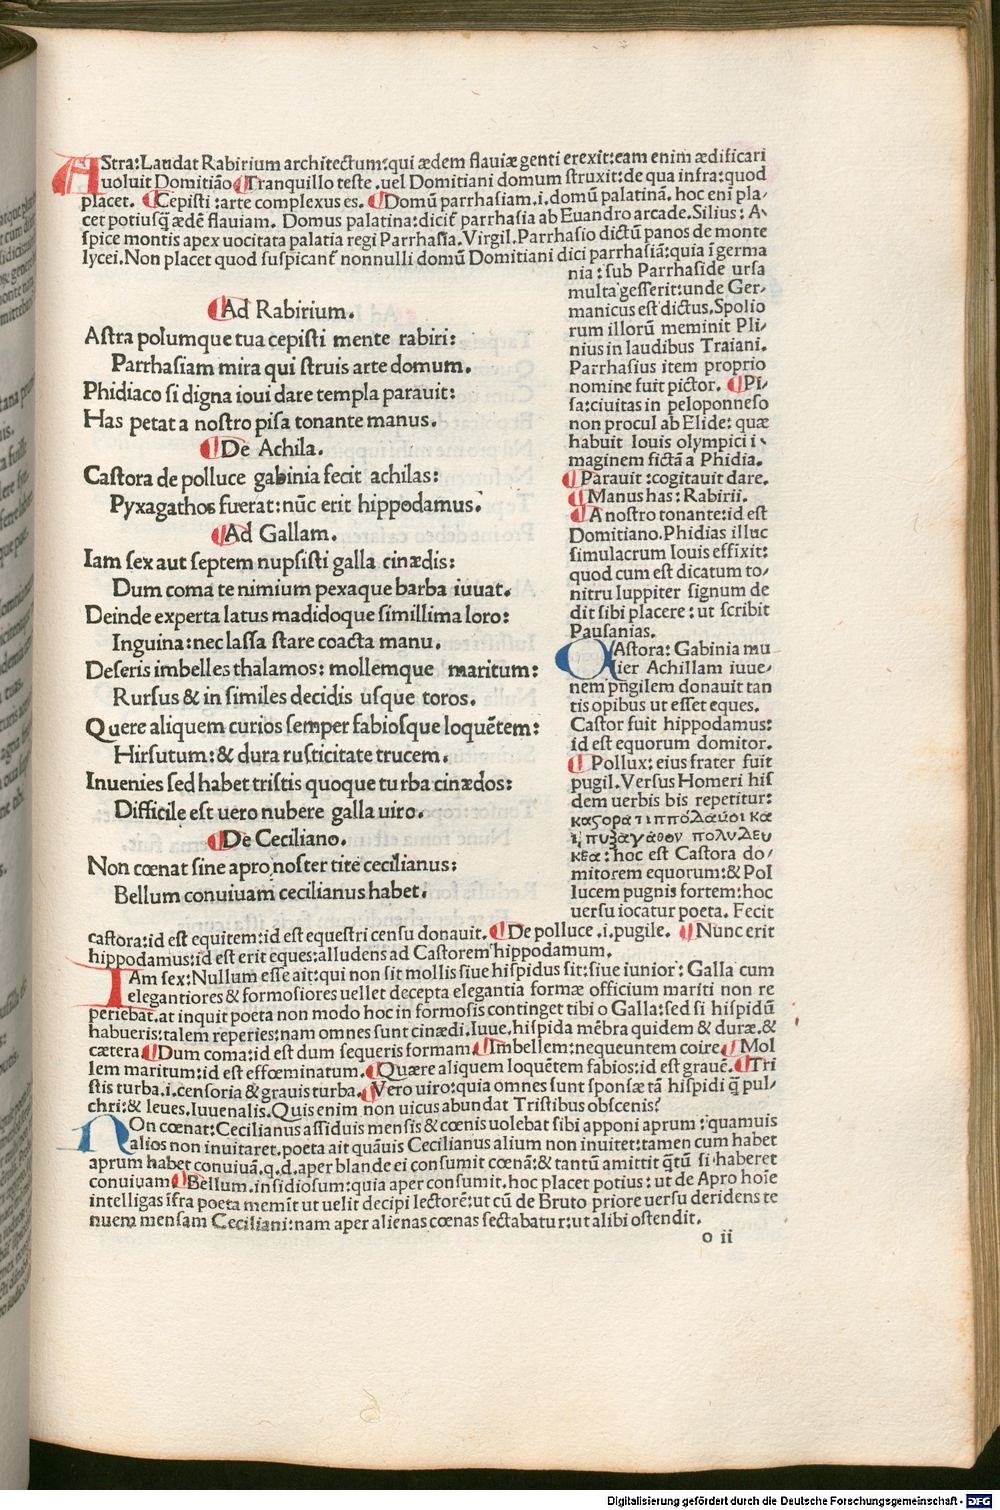 AStra:Laudat Rabirium architectum:qui ædem flauiæ genti erexit:eam enim ædificari
uoluit Domitiāo ¶Tranquillo teste.uel Domitiani domum struxit:de qua infra:quod
placet. ¶Cepisti:arte complexus es. ¶Domū parrhasiam.i.domū palatinā. hoc eni pla/
cet potiusq̄ ædē flauiam. Domus palatina:dicit̄ parrhasia ab Euandro arcade. Silius: A
spice montis apex uocitata palatia regi Parrhasia.Virgil.Parrhasio dictū panos de monte
lycei.Non placet quod suspicant̄ nonnulli domū Domitiani dici parrhasiā:quia ī germa
nia:sub Parrhaside ursa
multa gesserit:unde Ger/
manicus est dictus.Spolio
rum illorū meminit Pli/
nius in laudibus Traiani.
Parrhasius item proprio
nomine fuit pictor. ¶Pi/
sa:ciuitas in peloponneso
non procul ab Elide:quæ
habuit Iouis olympici i
maginem fictā a Phidia.
¶Parauit:cogitauit dare.
¶Manus has:Rabirii.
¶A nostro tonante:id est
Domitiano.Phidias illuc
simulacrum Iouis effixit:
quod cum est dicatum to/
nitru Iuppiter signum de
dit sibi placere:ut scribit
Pausanias.
CAstora:Gabinia mu
lier Achillam iuue/
nem pugilem donauit tan
tis opibus ut esset eques.
Castor fuit hippodamus:
id est equorum domitor.
¶Pollux:eius frater fuit
pugil.Versus Homeri his
dem uerbis bis repetitur:
καςορα τ ιππόδαμοι κα
ι πυξαγαθον πολυδευ
κεα:hoc est Castora do/
mitorem equorum:& Pol
lucem pugnis fortem:hoc
uersu iocatur poeta. Fecit
¶Ad Rabirium.
Astra polumque tua cepisti mente rabiri:
Parrhasiam mira qui struis arte domum.
Phidiaco si digna ioui dare templa parauit:
Has petat a nostro pisa tonante manus.
¶De Achila.
Castora de polluce gabinia fecit achilas:
Pyxagathos fuerat:nūc erit hippodamus.
¶Ad Gallam.
Iam sex aut septem nupsisti galla cinædis:
Dum coma te nimium pexaque barba iuuat.
Deinde experta latus madidoque simillima loro:
Inguina:nec lassa stare coacta manu.
Deseris imbelles thalamos:mollemque maritum:
Rursus & in similes decidis usque toros.
Quere aliquem curios semper fabiosque loquētem:
Hirsutum:& dura rusticitate trucem.
Inuenies sed habet tristis quoque turba cinædos:
Difficile est uero nubere galla uiro.
¶De Ceciliano.
Non cœnat sine apro noster tite cecilianus:
Bellum conuiuam cecilianus habet.
castora:id est equitem:id est equestri censu donauit. ¶De polluce.i.pugile. ¶Nunc erit
hippodamus:id est erit eques:alludens ad Castorem hippodamum.
IAm sex:Nullum esse ait:qui non sit mollis siue hispidus sit:siue iunior:Galla cum
elegantiores & formosiores uellet decepta elegantia formæ officium mariti non re
periebat.at inquit poeta non modo hoc in formosis continget tibi o Galla:sed si hispidū
habueris:talem reperies:nam omnes sunt cinædi.Iuue.hispida mēbra quidem & duræ.&
cætera ¶Dum coma:id est dum sequeris formam ¶Imbellem:nequeuntem coire ¶Mol
lem maritum:id est effœminatum. ¶Quære aliquem loquētem fabios:id est grauē. ¶Tri
stis turba.i.censoria & grauis turba. ¶Vero uiro:quia omnes sunt sponsæ tā hispidi q̄ pul/
chri:& leues.Iuuenalis.Quis enim non uicus abundat Tristibus obscenis?
NOn cœnat:Cecilianus assiduis mensis & cœnis uolebat sibi apponi aprum:quamuis
alios non inuitaret.poeta ait quāuis Cecilianus alium non inuitet:tamen cum habet
aprum habet conuiuā.q.d.aper blande ei consumit cœnā:& tantū amittit q̄tū si haberet
conuiuam ¶Bellum.insidiosum:quia aper consumit.hoc placet potius:ut de Apro hoīe
intelligas ifra poeta memīt ut uelit decipi lectorē:ut cū de Bruto priore uersu deridens te
nuem mensam Ceciliani:nam aper alienas cœnas sectabatur:ut alibi ostendit.
o ii
Digitalisierung gefördert durch die Deutsche Forschungsgemeinschaft - DFG